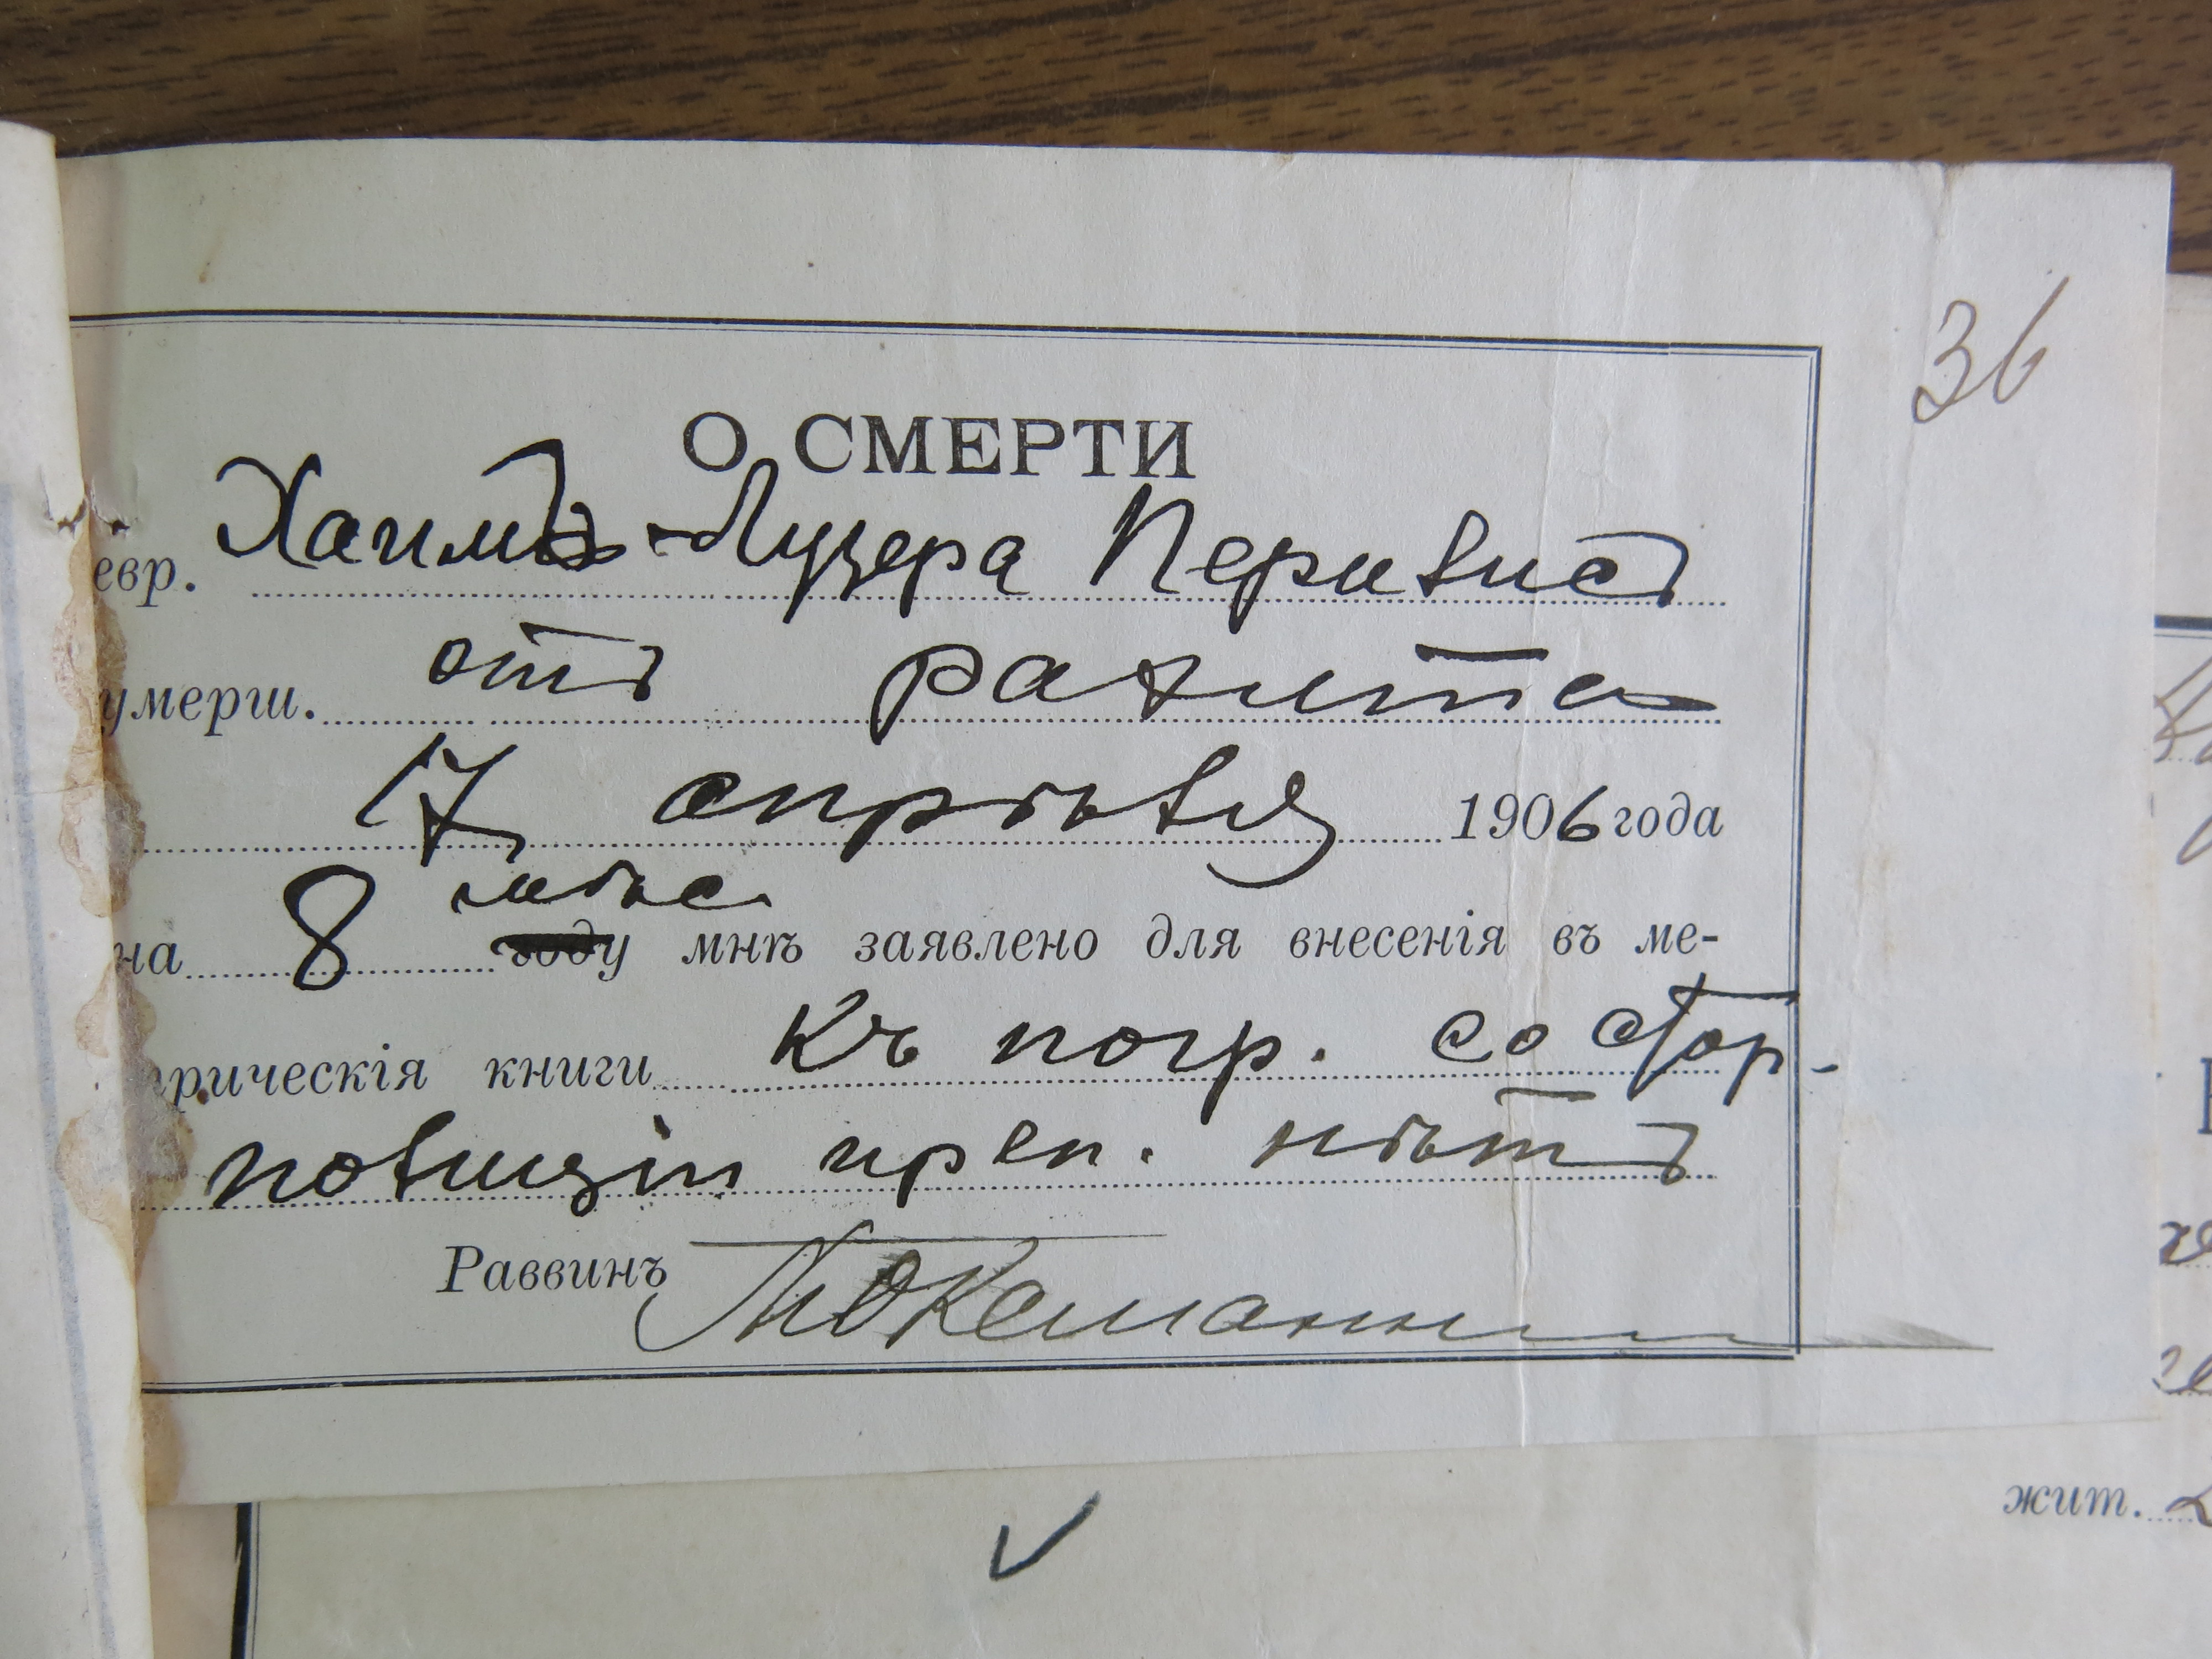 36
О СМЕРТИ
евр. Хаимъ-Лузера Перлвис
умерш. отъ рахита
17 апрѣля 1906 года
на 8 мѣс году мнѣ заявлено для внесенія въ ме-
рическія книги къ погр. со стор.
полиціи преп. нѣтъ
Раввинъ
жит.